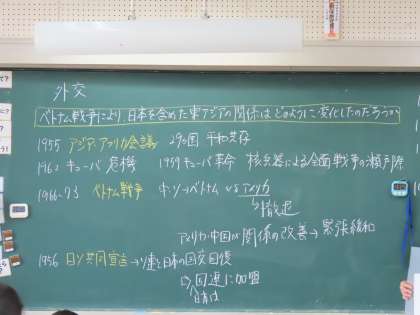 外交
ベトナム戦争により、日本を含めた東アジアの関係はどのように変化したのだろうか
1955 アジア・アフリカ会議 29か国 平和共存
1962 キューバ危機 1959キューバ革命 核兵器による全面戦争の瀬戸際
1966-73 ベトナム戦争 中・ソ→ベトナム vs アメリカ
↳撤退
アメリカ・中国は関係の改善→緊張緩和
1956 日ソ共同宣言→ソ連と日本の国交回復
↳国連に加盟
日本は